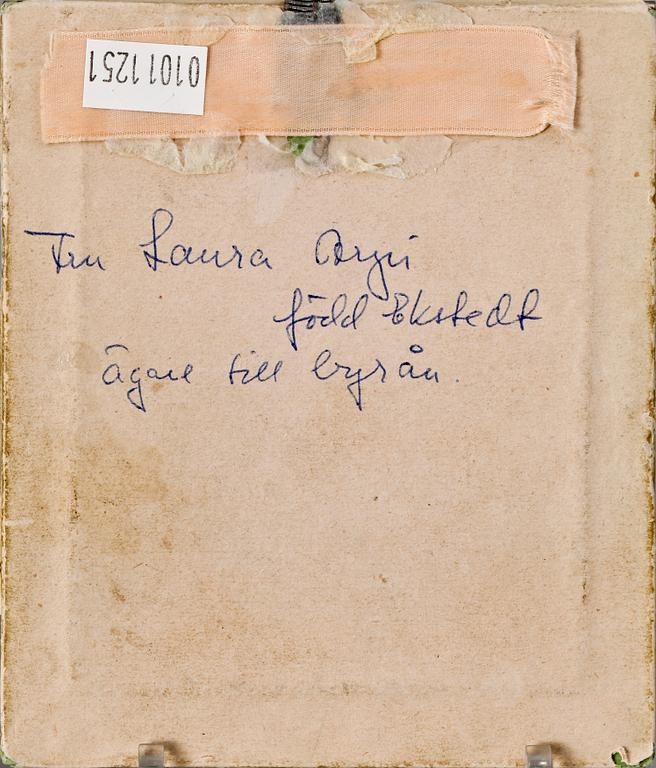 01011251
Fru Laura
född Ekstedt
ägare till byrån.